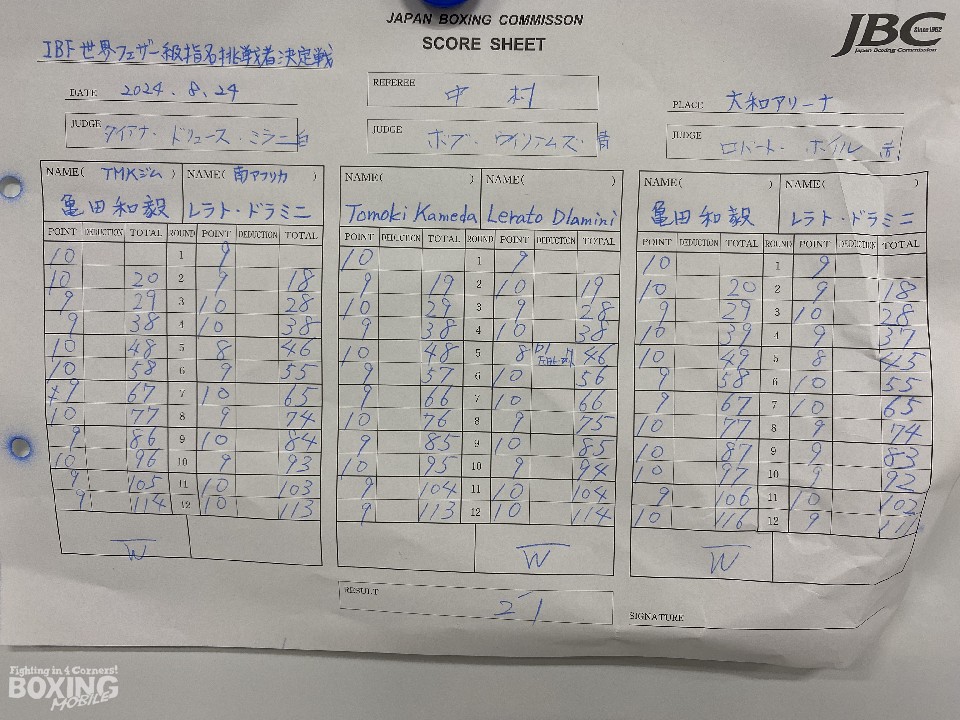 JAPAN BOXING COMMISSON
SCORE SHEET
JBC Since 1952
Japan Boxing Commission
IBF世界フェザー級指名挑戦者決定戦
DATE 2024.8.24
REFEREE 中村
PLACE 大和アリーナ
JUDGE タイアナ・ドリュース・ミラニ 白
JUDGE ボブ・ウイリアムス・青
JUDGE ロバート・ホイル 赤
NAME( TMKジム ) NAME( 南アフリカ )
亀田和毅 レラト・ドラミニ
POINT DEDUCTION TOTAL ROUND POINT DEDUCTION TOTAL
10 1 9
10 20 2 9 18
9 29 3 10 28
9 38 4 10 38
10 48 5 8 46
10 58 6 9 55
9 67 7 10 65
10 77 8 9 74
9 86 9 10 84
10 96 10 9 93
9 105 11 10 103
9 114 12 10 113
W
NAME( ) NAME( )
Tomoki Kameda Lerato Dlamini
POINT DEDUCTION TOTAL ROUND POINT DEDUCTION TOTAL
10 1 9
9 19 2 10 19
10 29 3 9 28
9 38 4 10 38
10 48 5 8 46
9 57 6 10 56
9 66 7 10 66
10 76 8 9 75
9 85 9 10 85
10 95 10 9 94
9 104 11 10 104
9 113 12 10 114
W
NAME( ) NAME( )
亀田和毅 レラト・ドラミニ
POINT DEDUCTION TOTAL ROUND POINT DEDUCTION TOTAL
10 1 9
10 20 2 9 18
9 29 3 10 28
10 39 4 9 37
10 49 5 8 45
9 58 6 10 55
9 67 7 10 65
10 77 8 9 74
10 87 9 9 83
10 97 10 9 92
9 106 11 10 102
10 116 12 9 111
W
RESULT 2-1
SIGNATURE
Fighting in 4 Corners!
BOXING
MOBILE